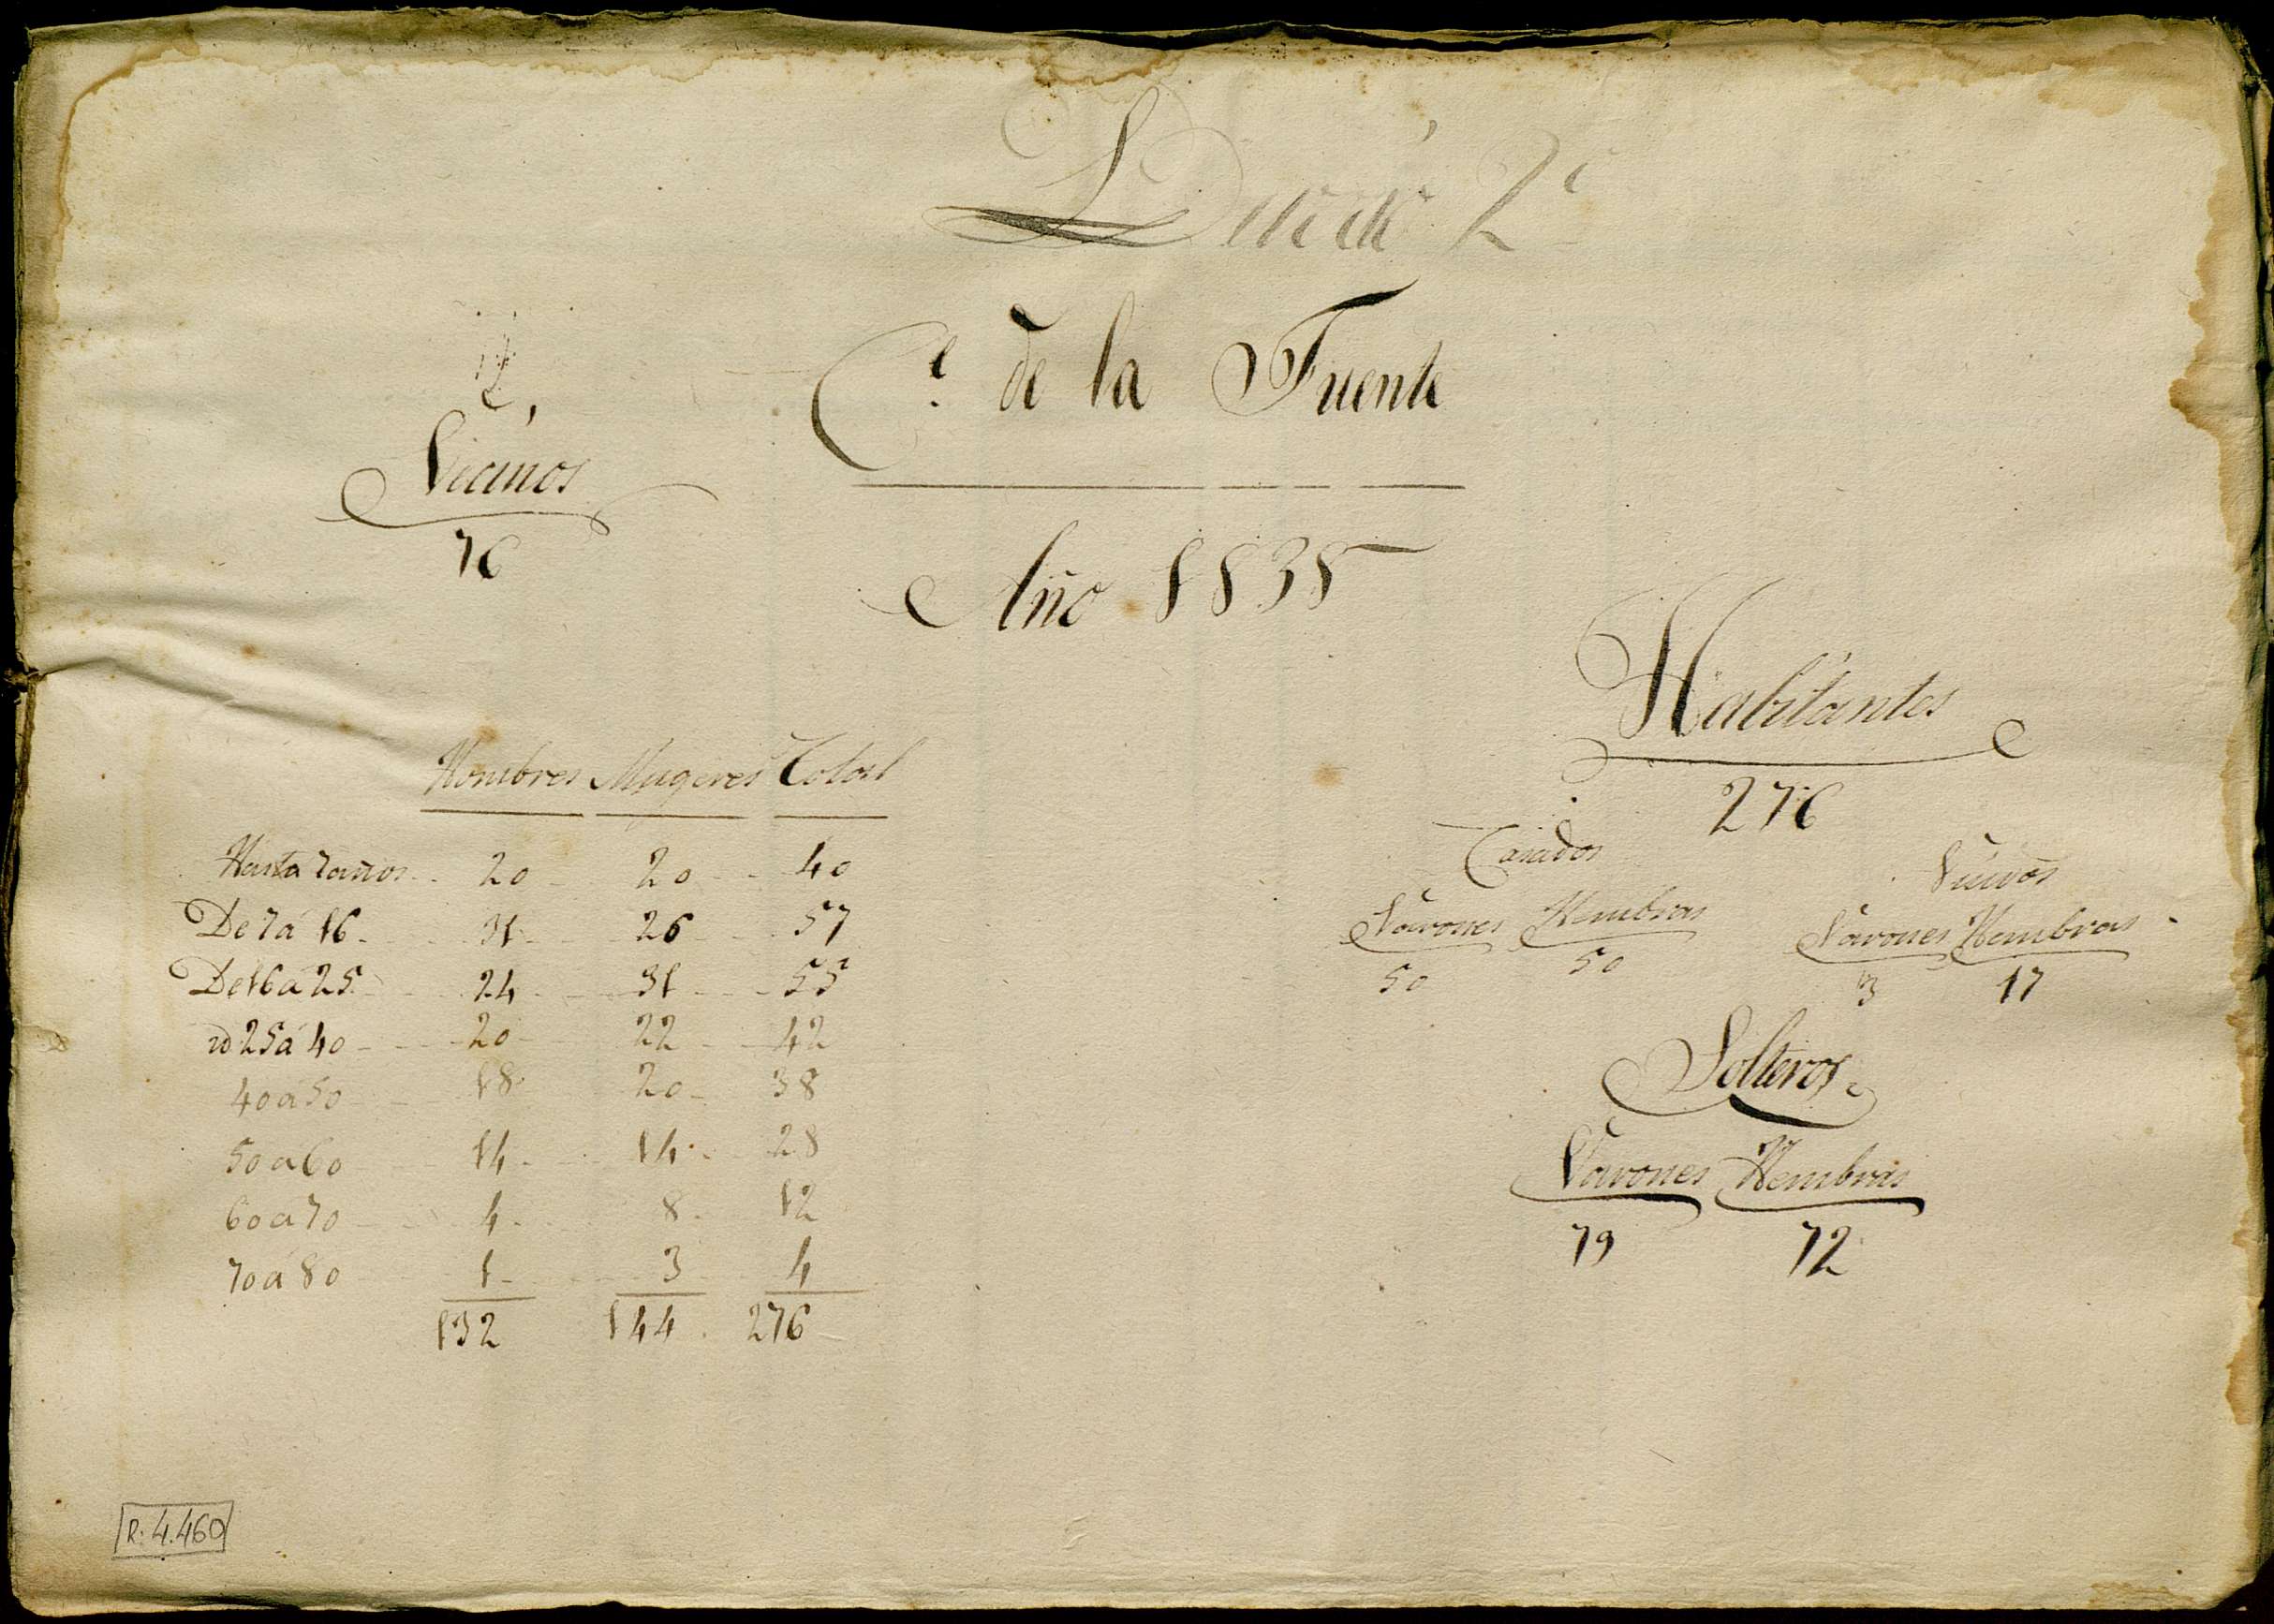 2ͤ
C.ͤ de la Fuente
Vecinos
76
Año 1835
Habitantes
276
Hombres Mugeres Total
Hasta 7 años 20 20 40
De 7 á 16 31 26 57
De 16 á 25 24 31 55
id 25 á 40 20 22 42
40 á 50 18 20 38
50 á 60 14 14 28
60 á 70 4 8 12
70 á 80 1 3 4
132 144 276
Casados
Varones Hembras
50 50
Viuvos
Varones Hembras
3 17
Solteros
Varones Hembras
79 72
R. 4.460